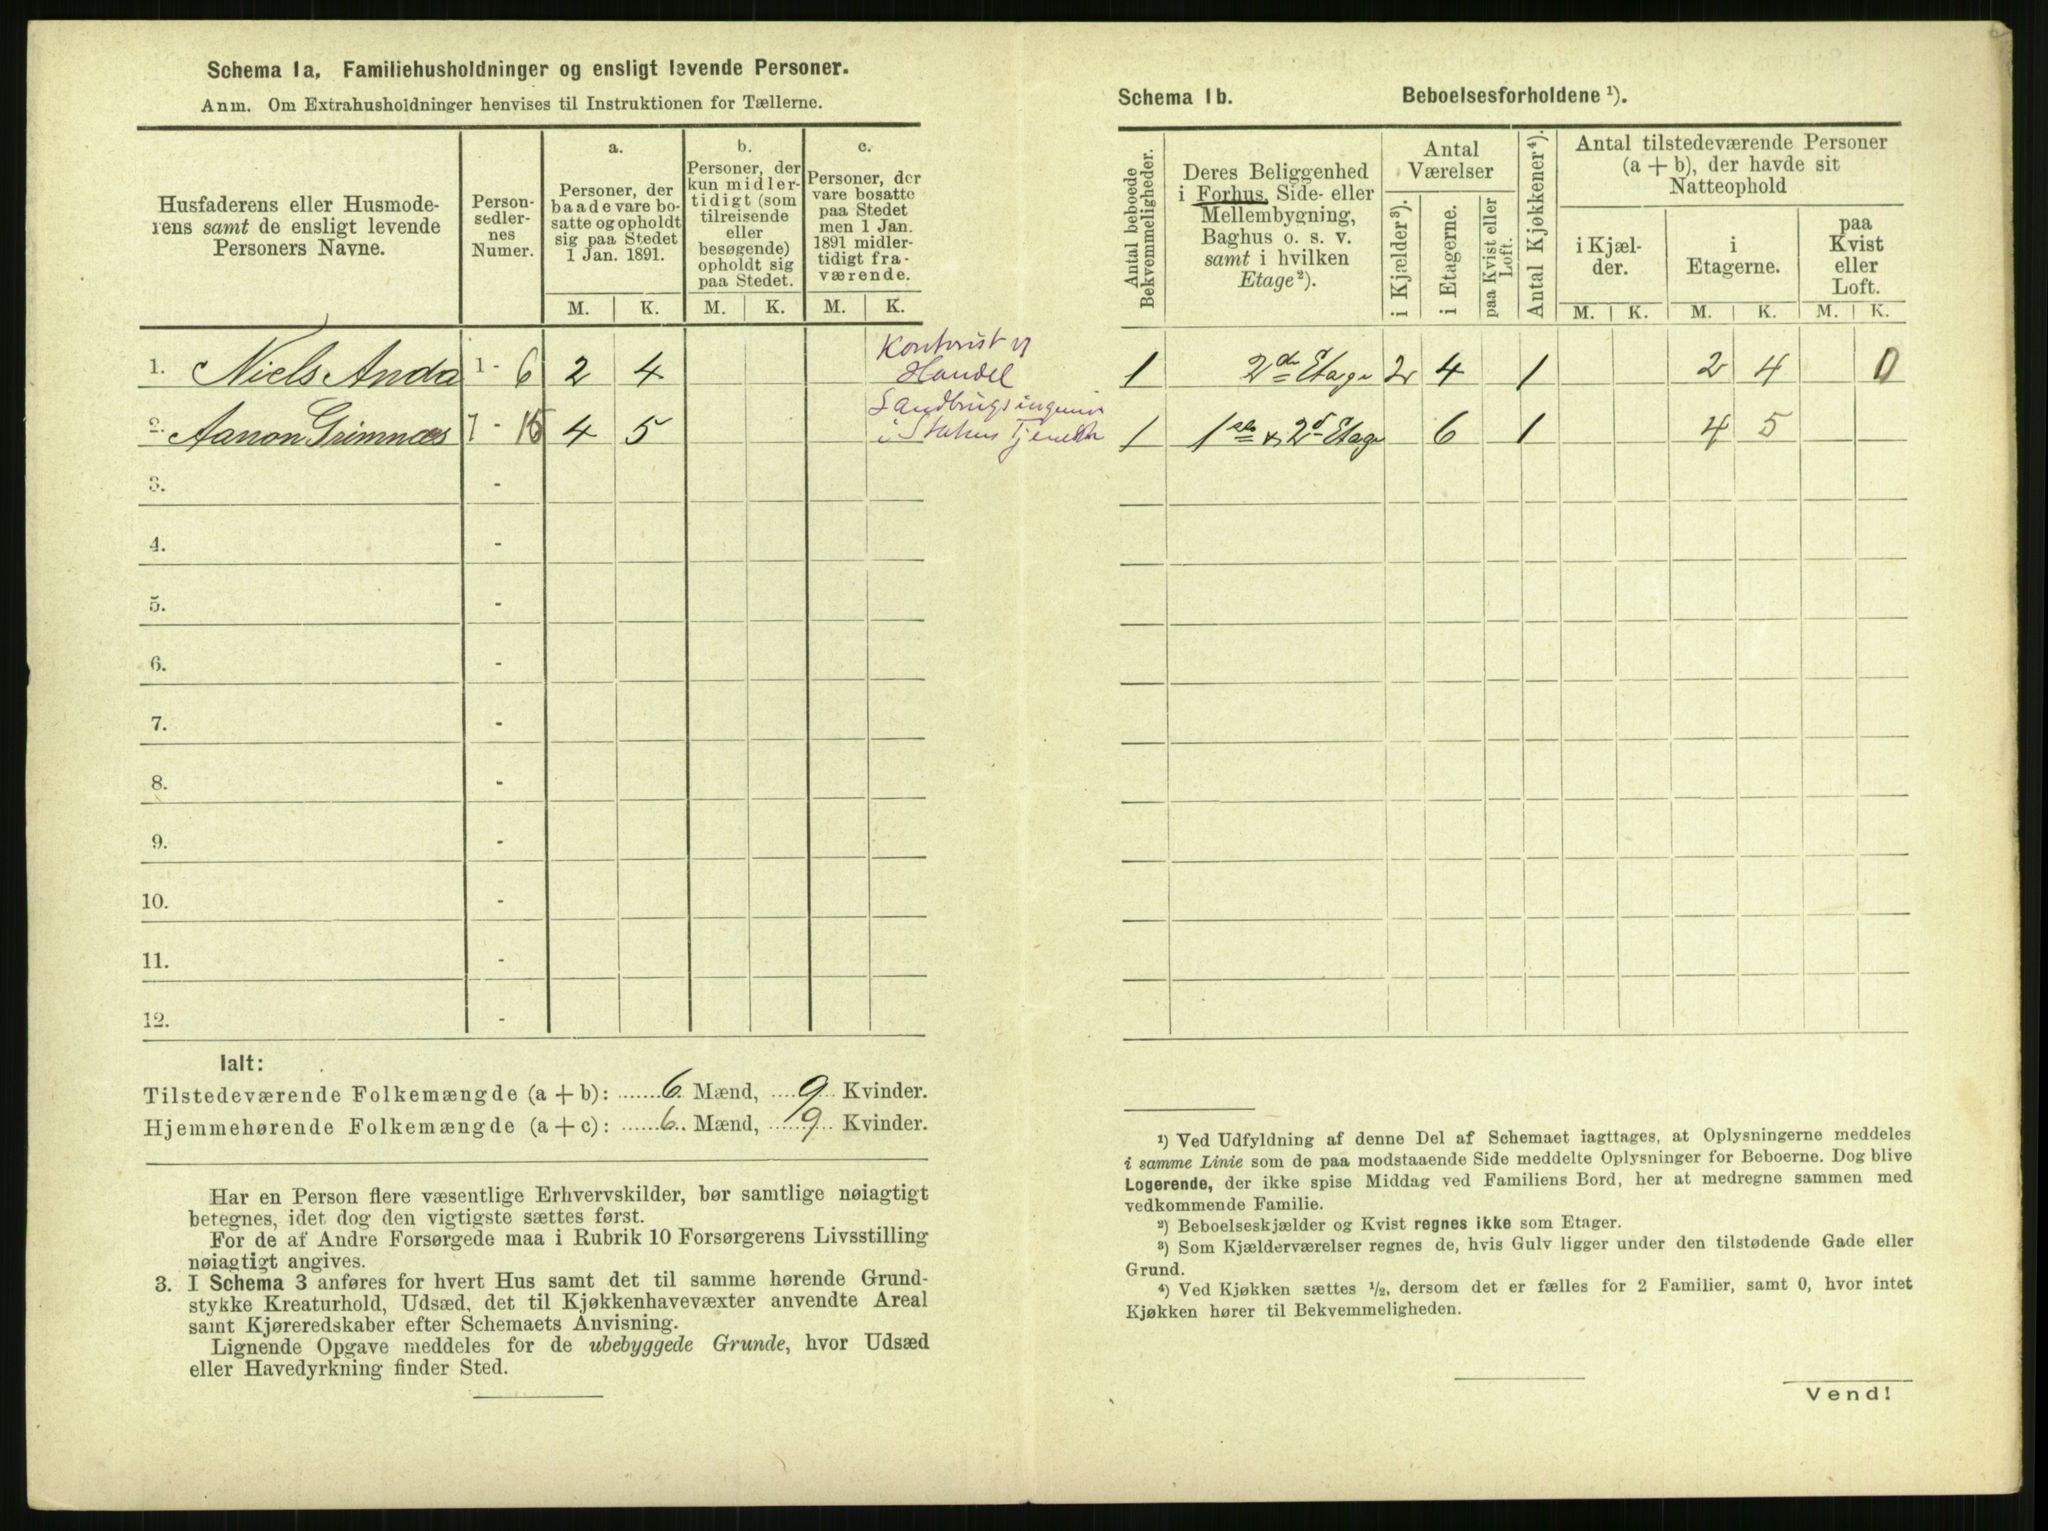 Schema 1a. Familiehusholdninger og ensligt levende Personer.
Anm. Om Extrahusholdninger henvises til Instruktionen for Tællerne.
Husfaderens eller Husmode-
rens samt de ensligt levende
Personers Navne.
Person-
sedler-
nes
Numer.
a.
Personer, der
baade vare bo-
satte og opholdt
sig paa Stedet
1 Jan. 1891.
b.
Personer, der
kun midler-
tidigt (som
tilreisende
eller
besøgende)
opholdt sig
paa Stedet.
c.
Personer, der
vare bosatte
paa Stedet
men 1 Jan.
1891 midler-
tidigt fra-
værende.
M. K. M. K. M. K.
1. Niels Anda 1 - 6 2 4 Kontorist v
Handel
2. Aanon Grimnæs 7 - 15 4 5
i Statens Tjeneste
3. -
4. -
5. -
6. -
7. -
8. -
9. -
10. -
11. -
12. -
Ialt:
Tilstedeværende Folkemængde (a + b): 6 Mænd, 9 Kvinder.
Hjemmehørende Folkemængde (a + c): 6 Mænd, 9 Kvinder.
Har en Person flere væsentlige Erhvervskilder, bør samtlige nøiagtigt
betegnes, idet dog den vigtigste sættes først.
For de af Andre Forsørgede maa i Rubrik 10 Forsørgerens Livsstilling
nøiagtigt angives.
3. I Schema 3 anføres for hvert Hus samt det til samme hørende Grund-
stykke Kreaturhold, Udsæd, det til Kjøkkenhavevæxter anvendte Areal
samt Kjøreredskaber efter Schemaets Anvisning.
Lignende Opgave meddeles for de ubebyggede Grunde, hvor Udsæd
eller Havedyrkning finder Sted.
Schema 1b. Beboelsesforholdene ¹).
Antal beboede
Bekvemmeligheder.
Deres Beliggenhed
i Forhus, Side- eller
Mellembygning,
Baghus o. s. v.
samt i hvilken
Etage²).
Antal
Værelser
i Kjælder³).
i Etagerne.
paa Kvist eller
Loft.
Antal Kjøkkener⁴).
Antal tilstedeværende Personer
(a + b), der havde sit
Natteophold
i Kjæl-
der.
i
Etagerne.
paa
Kvist
eller
Loft.
M. K. M. K. M. K.
1 2den Etage 2 4 1 2 4 0
1 1ste & 2d Etage 6 1 4 5
¹) Ved Udfyldning af denne Del af Schemaet iagttages, at Oplysningerne meddeles
i samme Linie som de paa modstaaende Side meddelte Oplysninger for Beboerne. Dog blive
Logerende, der ikke spise Middag ved Familiens Bord, her at medregne sammen med
vedkommende Familie.
²) Beboelseskjælder og Kvist regnes ikke som Etager.
³) Som Kjælderværelser regnes de, hvis Gulv ligger under den tilstødende Gade eller
Grund.
⁴) Ved Kjøkken sættes ½, dersom det er fælles for 2 Familier, samt 0, hvor intet
Kjøkken hører til Bekvemmeligheden.
Vend!